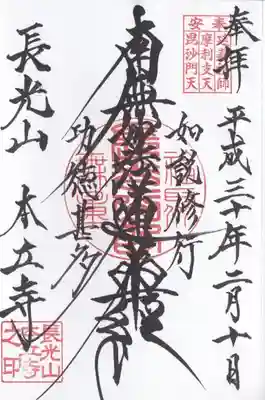 奉拝
平成三十年二月十日
摩利支天
安毘沙門天
如説修行
南無妙法蓮華経
功徳甚多
長光山 本立寺
長光山
本立寺
之印